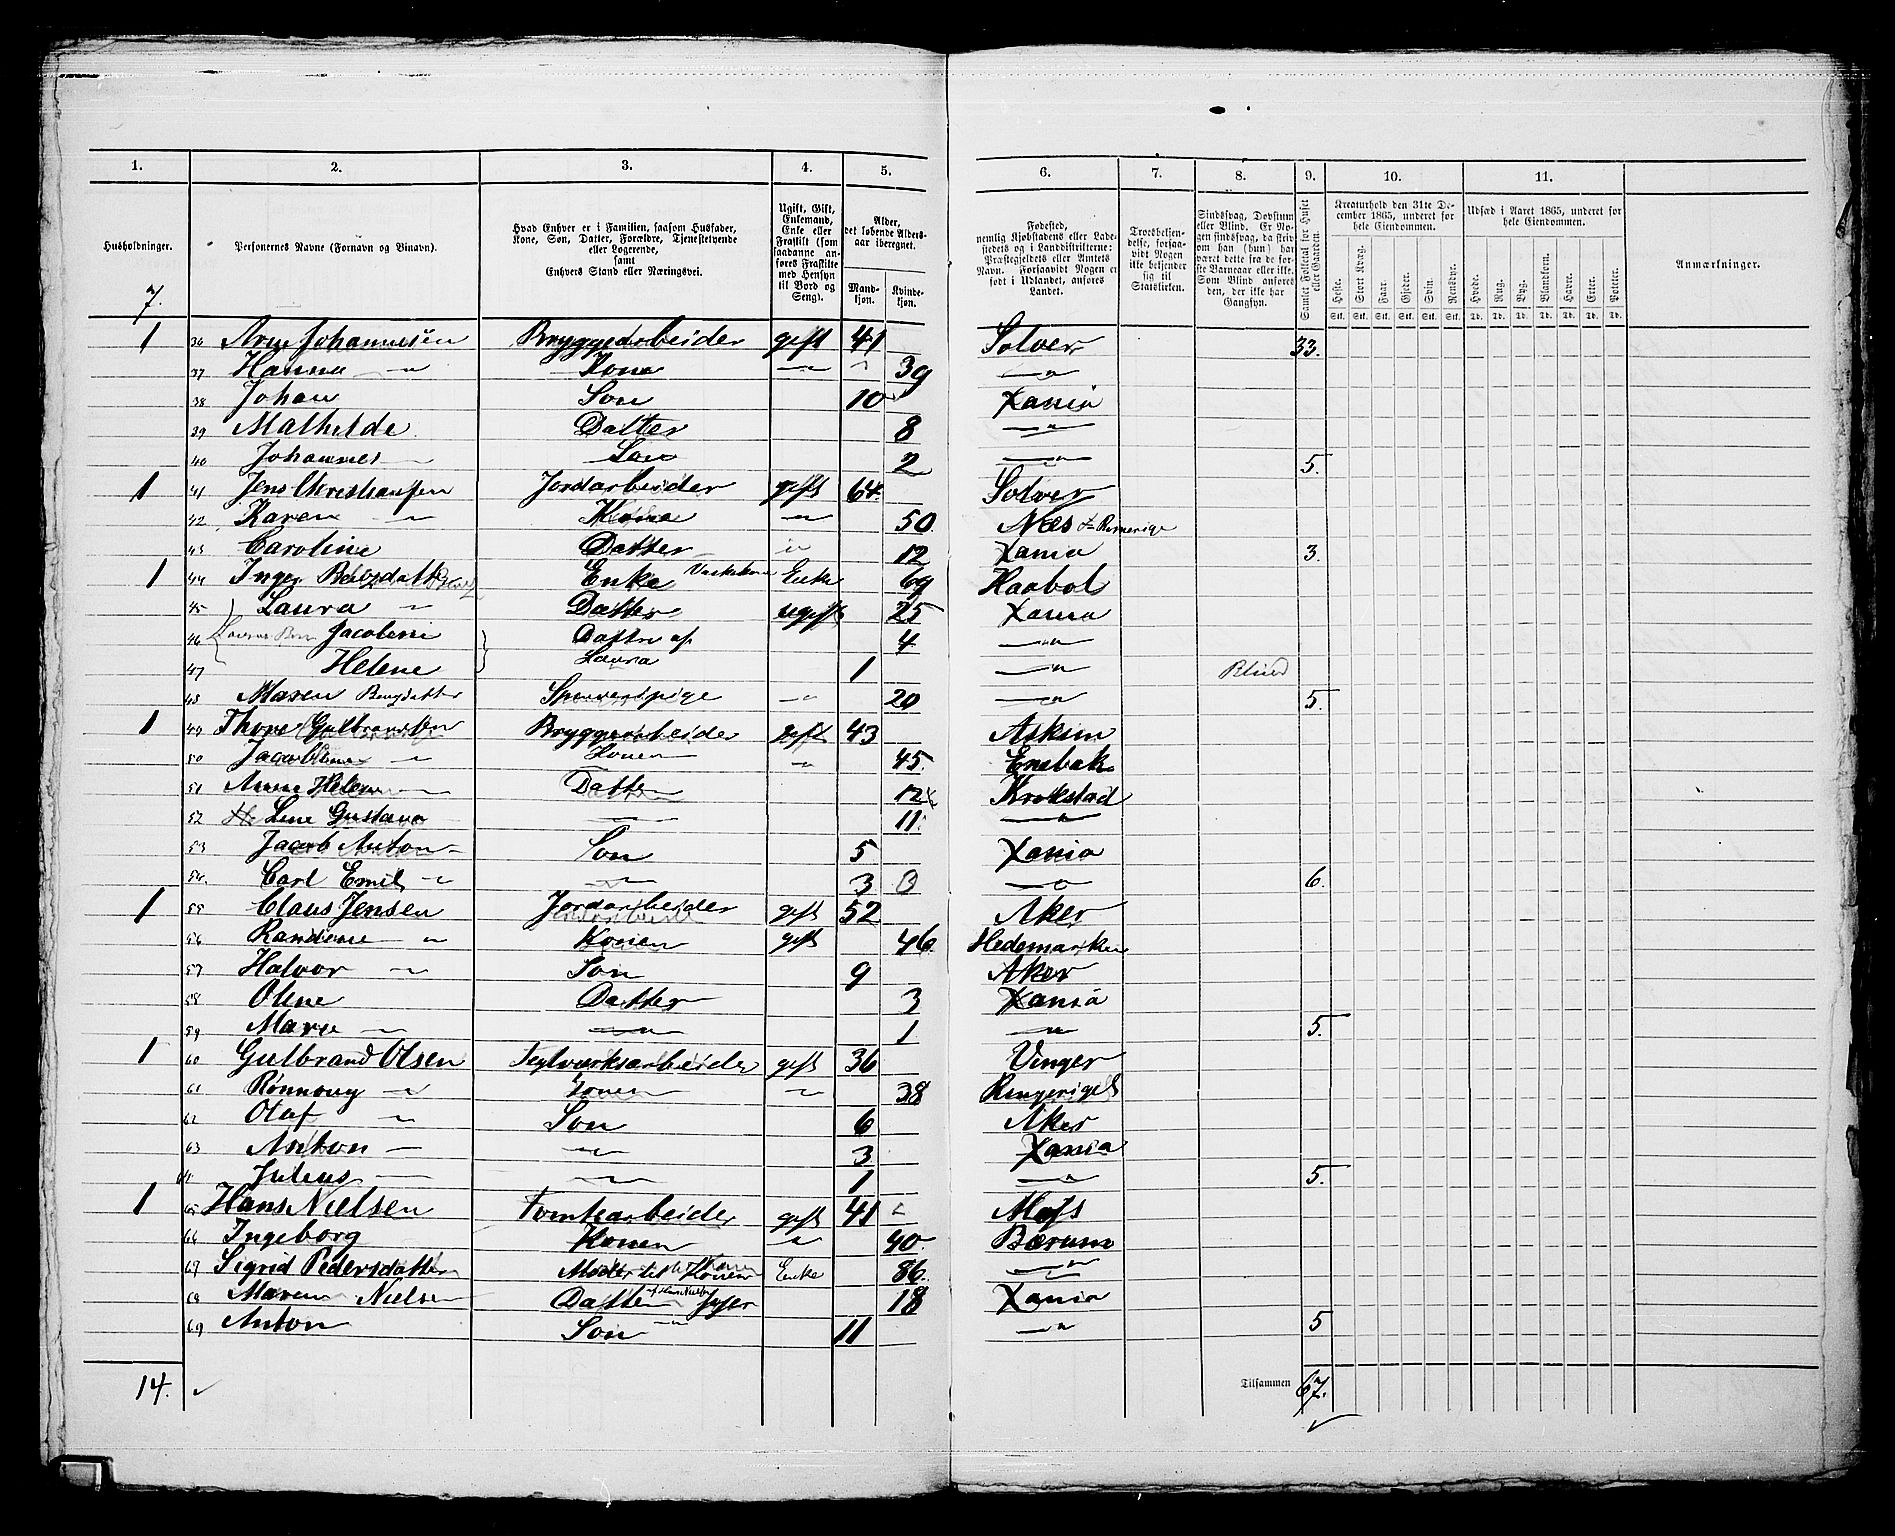 1. 2. 3. 4. 5. 6. 7. 8. 9. 10. 11.
Husholdninger.
Personernes Navne (Fornavn og Binavn).
Hvad Enhver er i Familien, saasom Husfader, Kone, Søn, Datter, Forældre, Tjenestetyende eller Logerende, samt Enhvers Stand eller Næringsvei.
Ugift, Gift, Enkemand, Enke eller Fraskilt (som saadanne anføres Fraskilte med Hensyn til Bord og Seng).
Alder, det løbende Aldersaar iberegnet.
Mandkjøn. Kvindekjøn.
Fødested, nemlig Kjøbstedens eller Ladestedets og i Landdistrikterne: Præstegjeldets eller Amtets Navn. Forsaavidt Nogen er født i Udlandet, anføres Landet.
Troesbekjendelse, forsaavidt Nogen ikke bekjender sig til Statskirken.
Sindssvag, Døvstum eller Blind. Er Nogen sindssvag, da skrives om han (hun) har været dette fra de første Barneaar eller ikke. Som Blind anføres den, der ikke har Gangsyn.
Samlet Folketal for Huset eller Gaarden.
Kreaturhold den 31te December 1865, underet for hele Eiendommen.
Heste. Stort Kvæg. Faar. Gjeder. Svin. Rensdyr.
Stk. Stk. Stk. Stk. Stk. Stk.
Udsæd i Aaret 1865, underet for hele Eiendommen.
Hvede. Rug. Byg. Blandkorn. Havre. Erter. Poteter.
Td. Td. Td. Td. Td. Td. Td.
Anmærkninger.
7.
1 36 Arne Johannesen Bryggearbeider gift 41 Solver 33.
37 Hanna — " Kone — " 39 — "
38 Johan Søn 10 Xania
39 Mathilde Datter 8 — "
40 Johannes — Søn 2 — " 5.
1 41 Jens Christiansen Jordarbeider gift 64. Solver
42 Karen — " Kone — " 50. Næs Romerige
43 Caroline Datter " 12 Xania 3.
1 44 Inger Enke Enke 69 Haabøl
45 Laura " Datter ugift 25 Xania
46 Jacobine Datter af 4 — "
47 Helene Laura 1 — " Blind
48 Maren Bengsdatter — " 20 — " 5.
1 49 Thore Gulbrandsen Bryggearbeider gift 43 Askim
50 Jacobine — " Konen — " 45. Enebak
51 Anne Helene — Datter 12 Krokstad
52 Lene Gustava — 11. — "
53 Jacob Anton — Søn 5 Xania
54. Carl Emil — " — " 3 3 — " 6.
1 55 Claus Jensen Jordarbeider gift 52 Aker
56 Randine — " Konen gift 46. Hedemarken
57 Halvor — " Søn 9 Aker
58 Oline Datter 3 Xania
59 Marie — " — " 1 — " 5.
1 60 Gulbrand Olsen Teglværksarbeider gift 36 Vinger
61 Rønnoug — " Konen — " 38 Ringeriget
62 Olaf — " Søn 6 Aker
63 Anton — " — " 3 Xania
64 Julius — — " 1 — " 5.
1 65 Hans Nielsen Tomtearbeider gift 41 " Moss
66 Ingeborg Konen " 40. Bærum
67 Sigrid Pedersdatter Moder til Konen Enke 86. — "
68 Maren Nielsen Datter 18 Xania
69 Anton Søn 11 — " 5
14. Tilsammen 67.